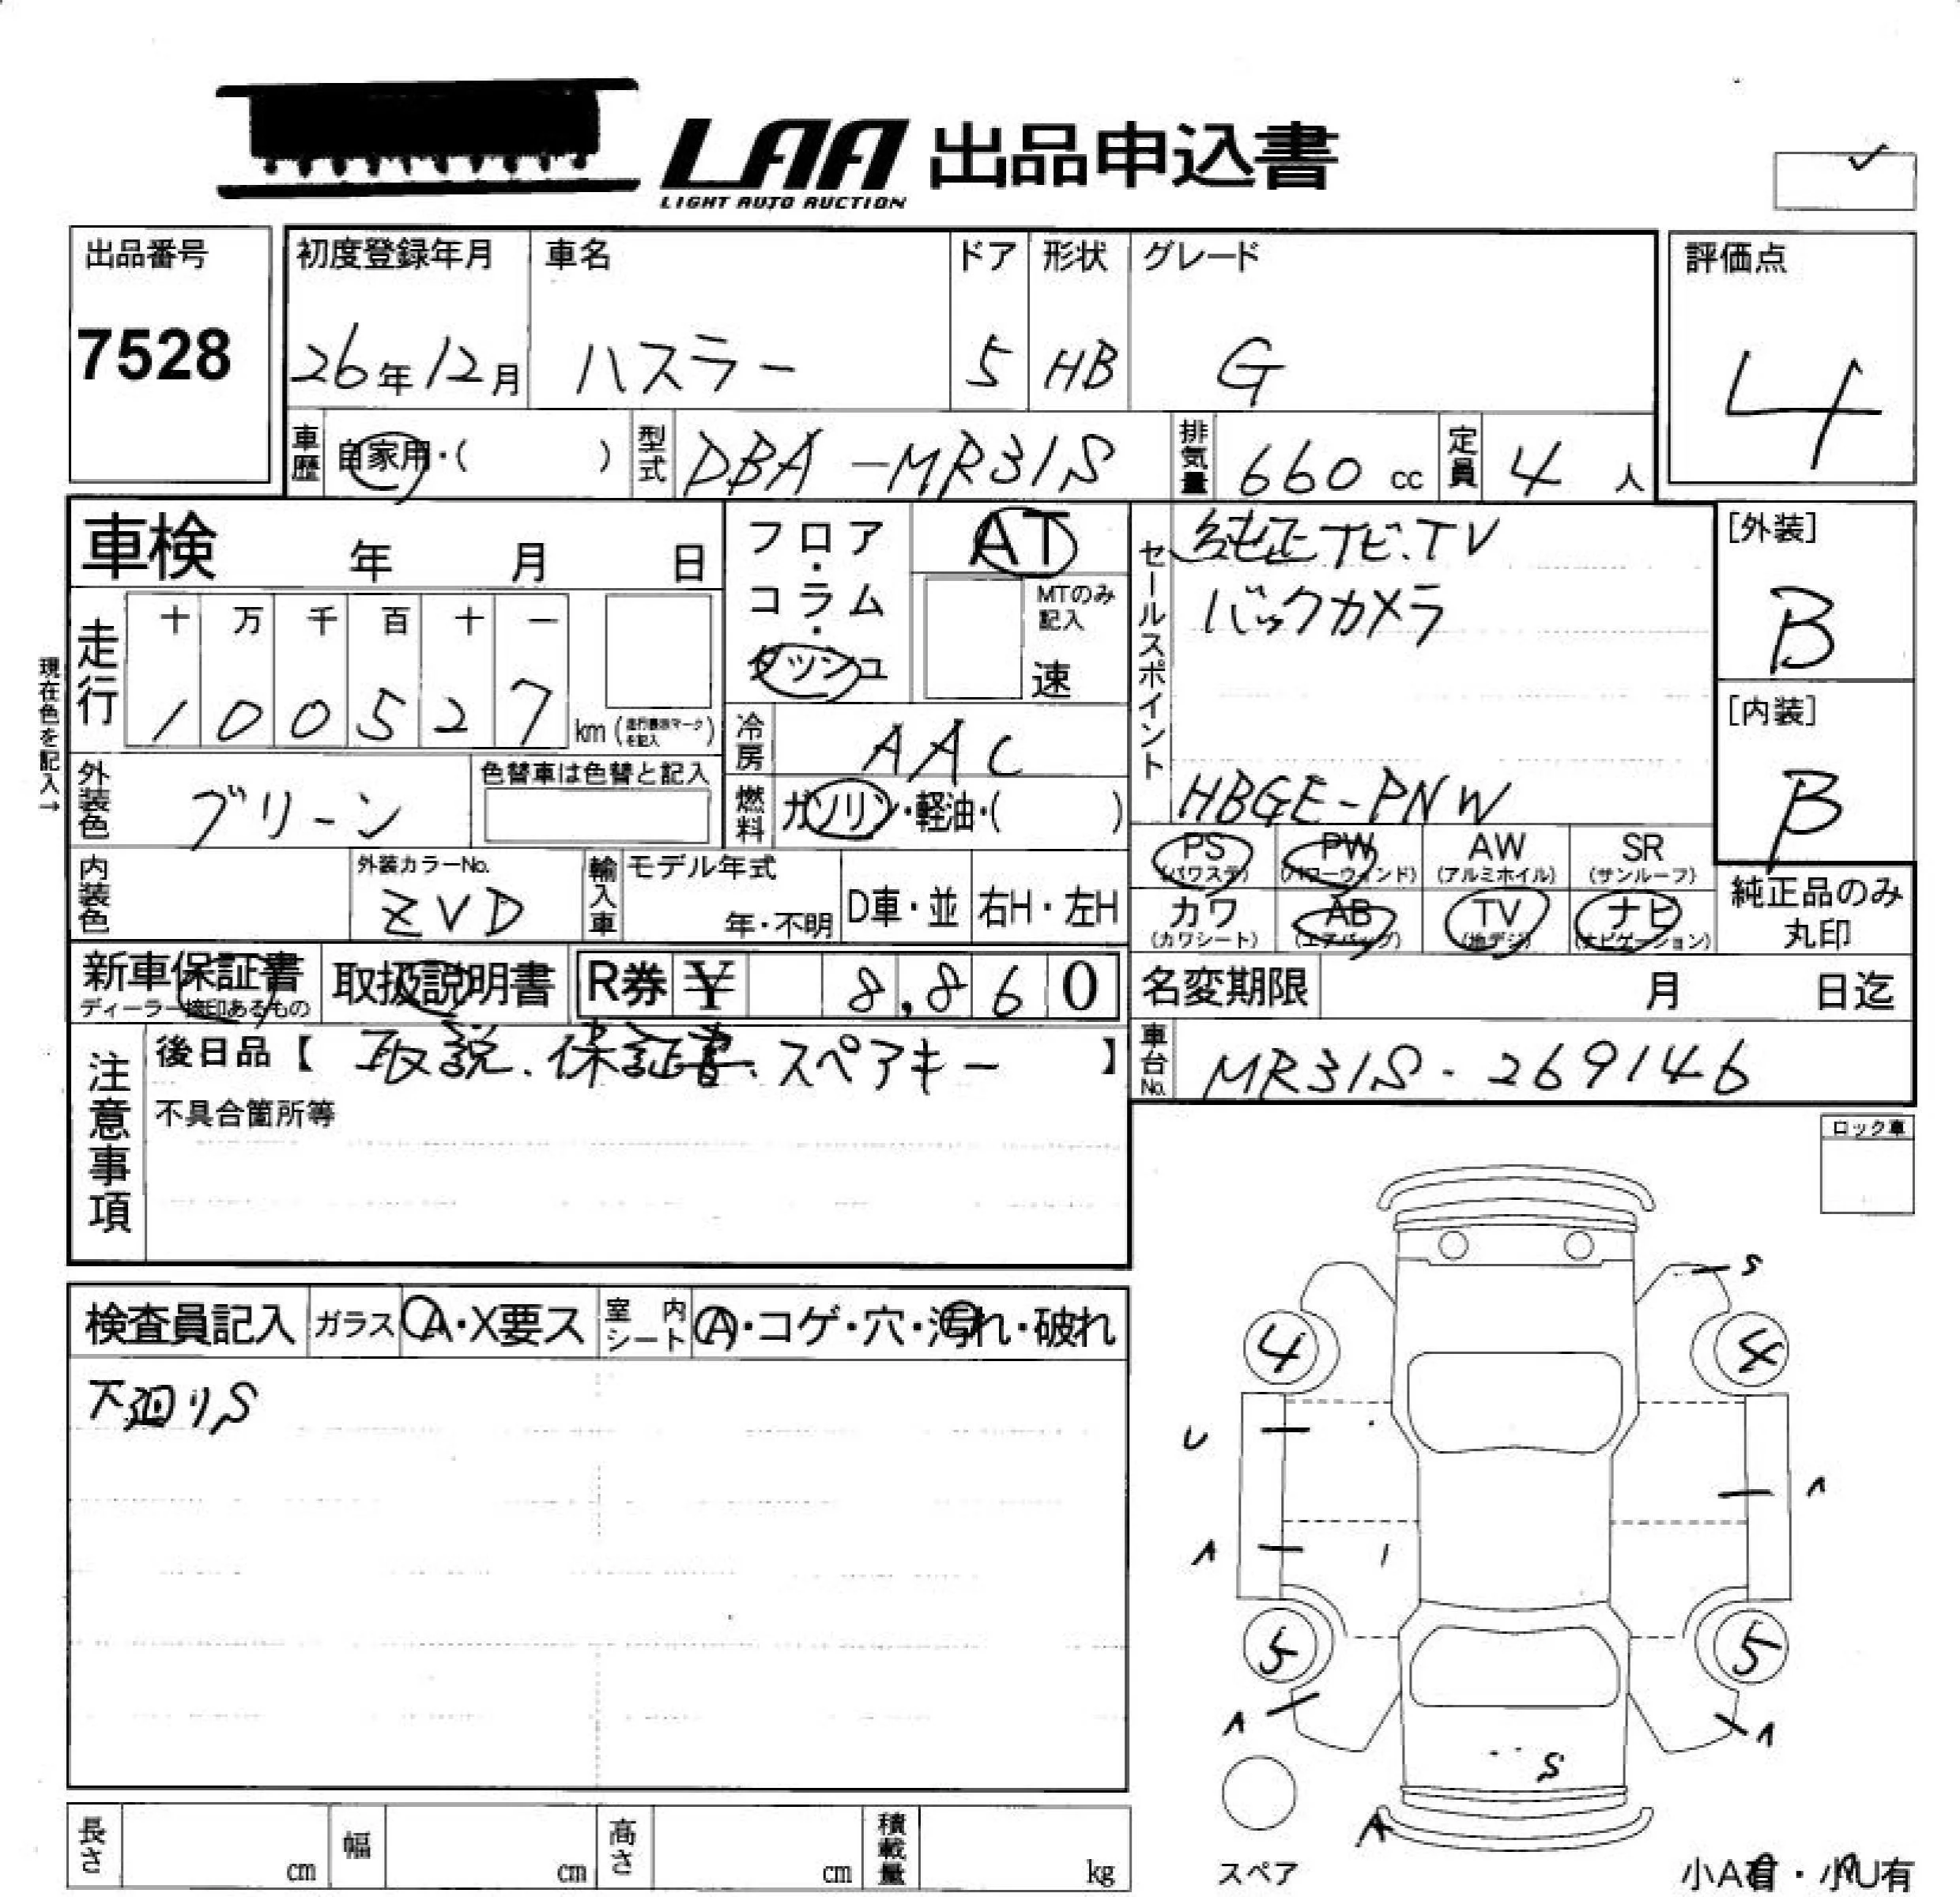 LAA 出品申込書
LIGHT AUTO AUCTION
出品番号
7528
初度登録年月
26年12月
車名
ハスラー
ドア
5
形状
HB
グレード
G
評価点
4
車歴
自家用・( )
型式
DBA-MR31S
排気量
660 cc
定員
4 人
車検 年 月 日
フロア・コラム・ダッシュ
AT
MTのみ記入
速
セールスポイント
純正ナビ.TV
バックカメラ
HBGE-PNW
[外装]
B
[内装]
B
現在色を記入→
走行
十 万 千 百 十 一
1 0 0 5 2 7
km (走行表示マークを記入)
冷房
AAC
外装色
グリーン
色替車は色替と記入
燃料
ガソリン・軽油・( )
PS (パワステ)
PW (パワーウィンド)
AW (アルミホイル)
SR (サンルーフ)
カワ (カワシート)
AB (エアバッグ)
TV (地デジ)
ナビ (ナビゲーション)
純正品のみ
丸印
内装色
外装カラーNo.
ZVD
輸入車
モデル年式
年・不明
D車・並
右H・左H
新車保証書
ディーラー捺印あるもの
取扱説明書
R券 ¥ 8,860
名変期限 月 日迄
注意事項
後日品【 取説.保証書.スペアキー 】
不具合箇所等
車台No.
MR31S-269146
ロック車
検査員記入
ガラス
A・X要ス
室内シート
A・コゲ・穴・汚れ・破れ
下廻りS
S
4
4
U
A
A
5
5
A
A
S
A
スペア
長さ cm
幅 cm
高さ cm
積載量 kg
小A有・小U有